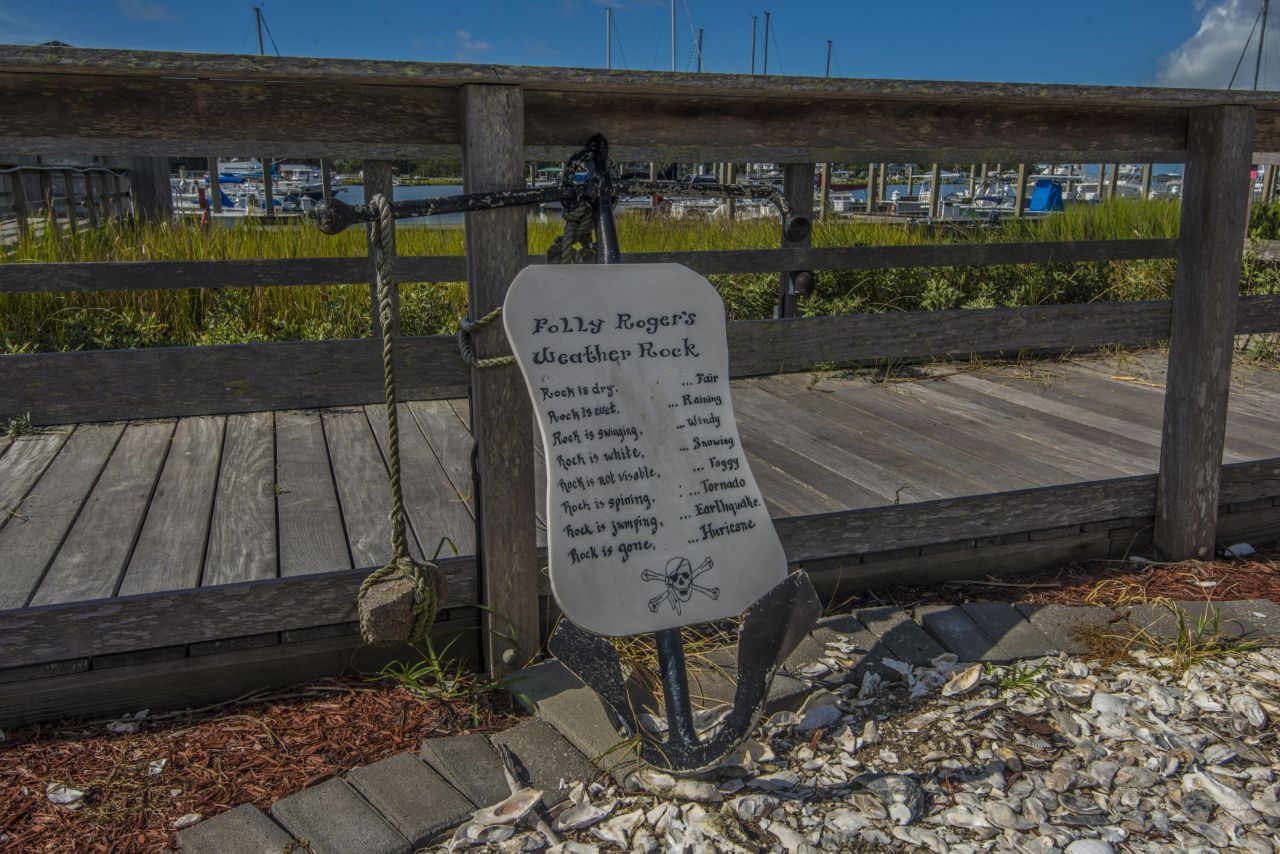 Folly Roger's
Weather Rock
Rock is dry. ... Fair
Rock is wet. ... Raining
Rock is swinging. ... Windy
Rock is white. ... Snowing
Rock is not visable. ... Foggy
Rock is spining. ... Tornado
Rock is jumping. ... Earthquake
Rock is gone. ... Huricane